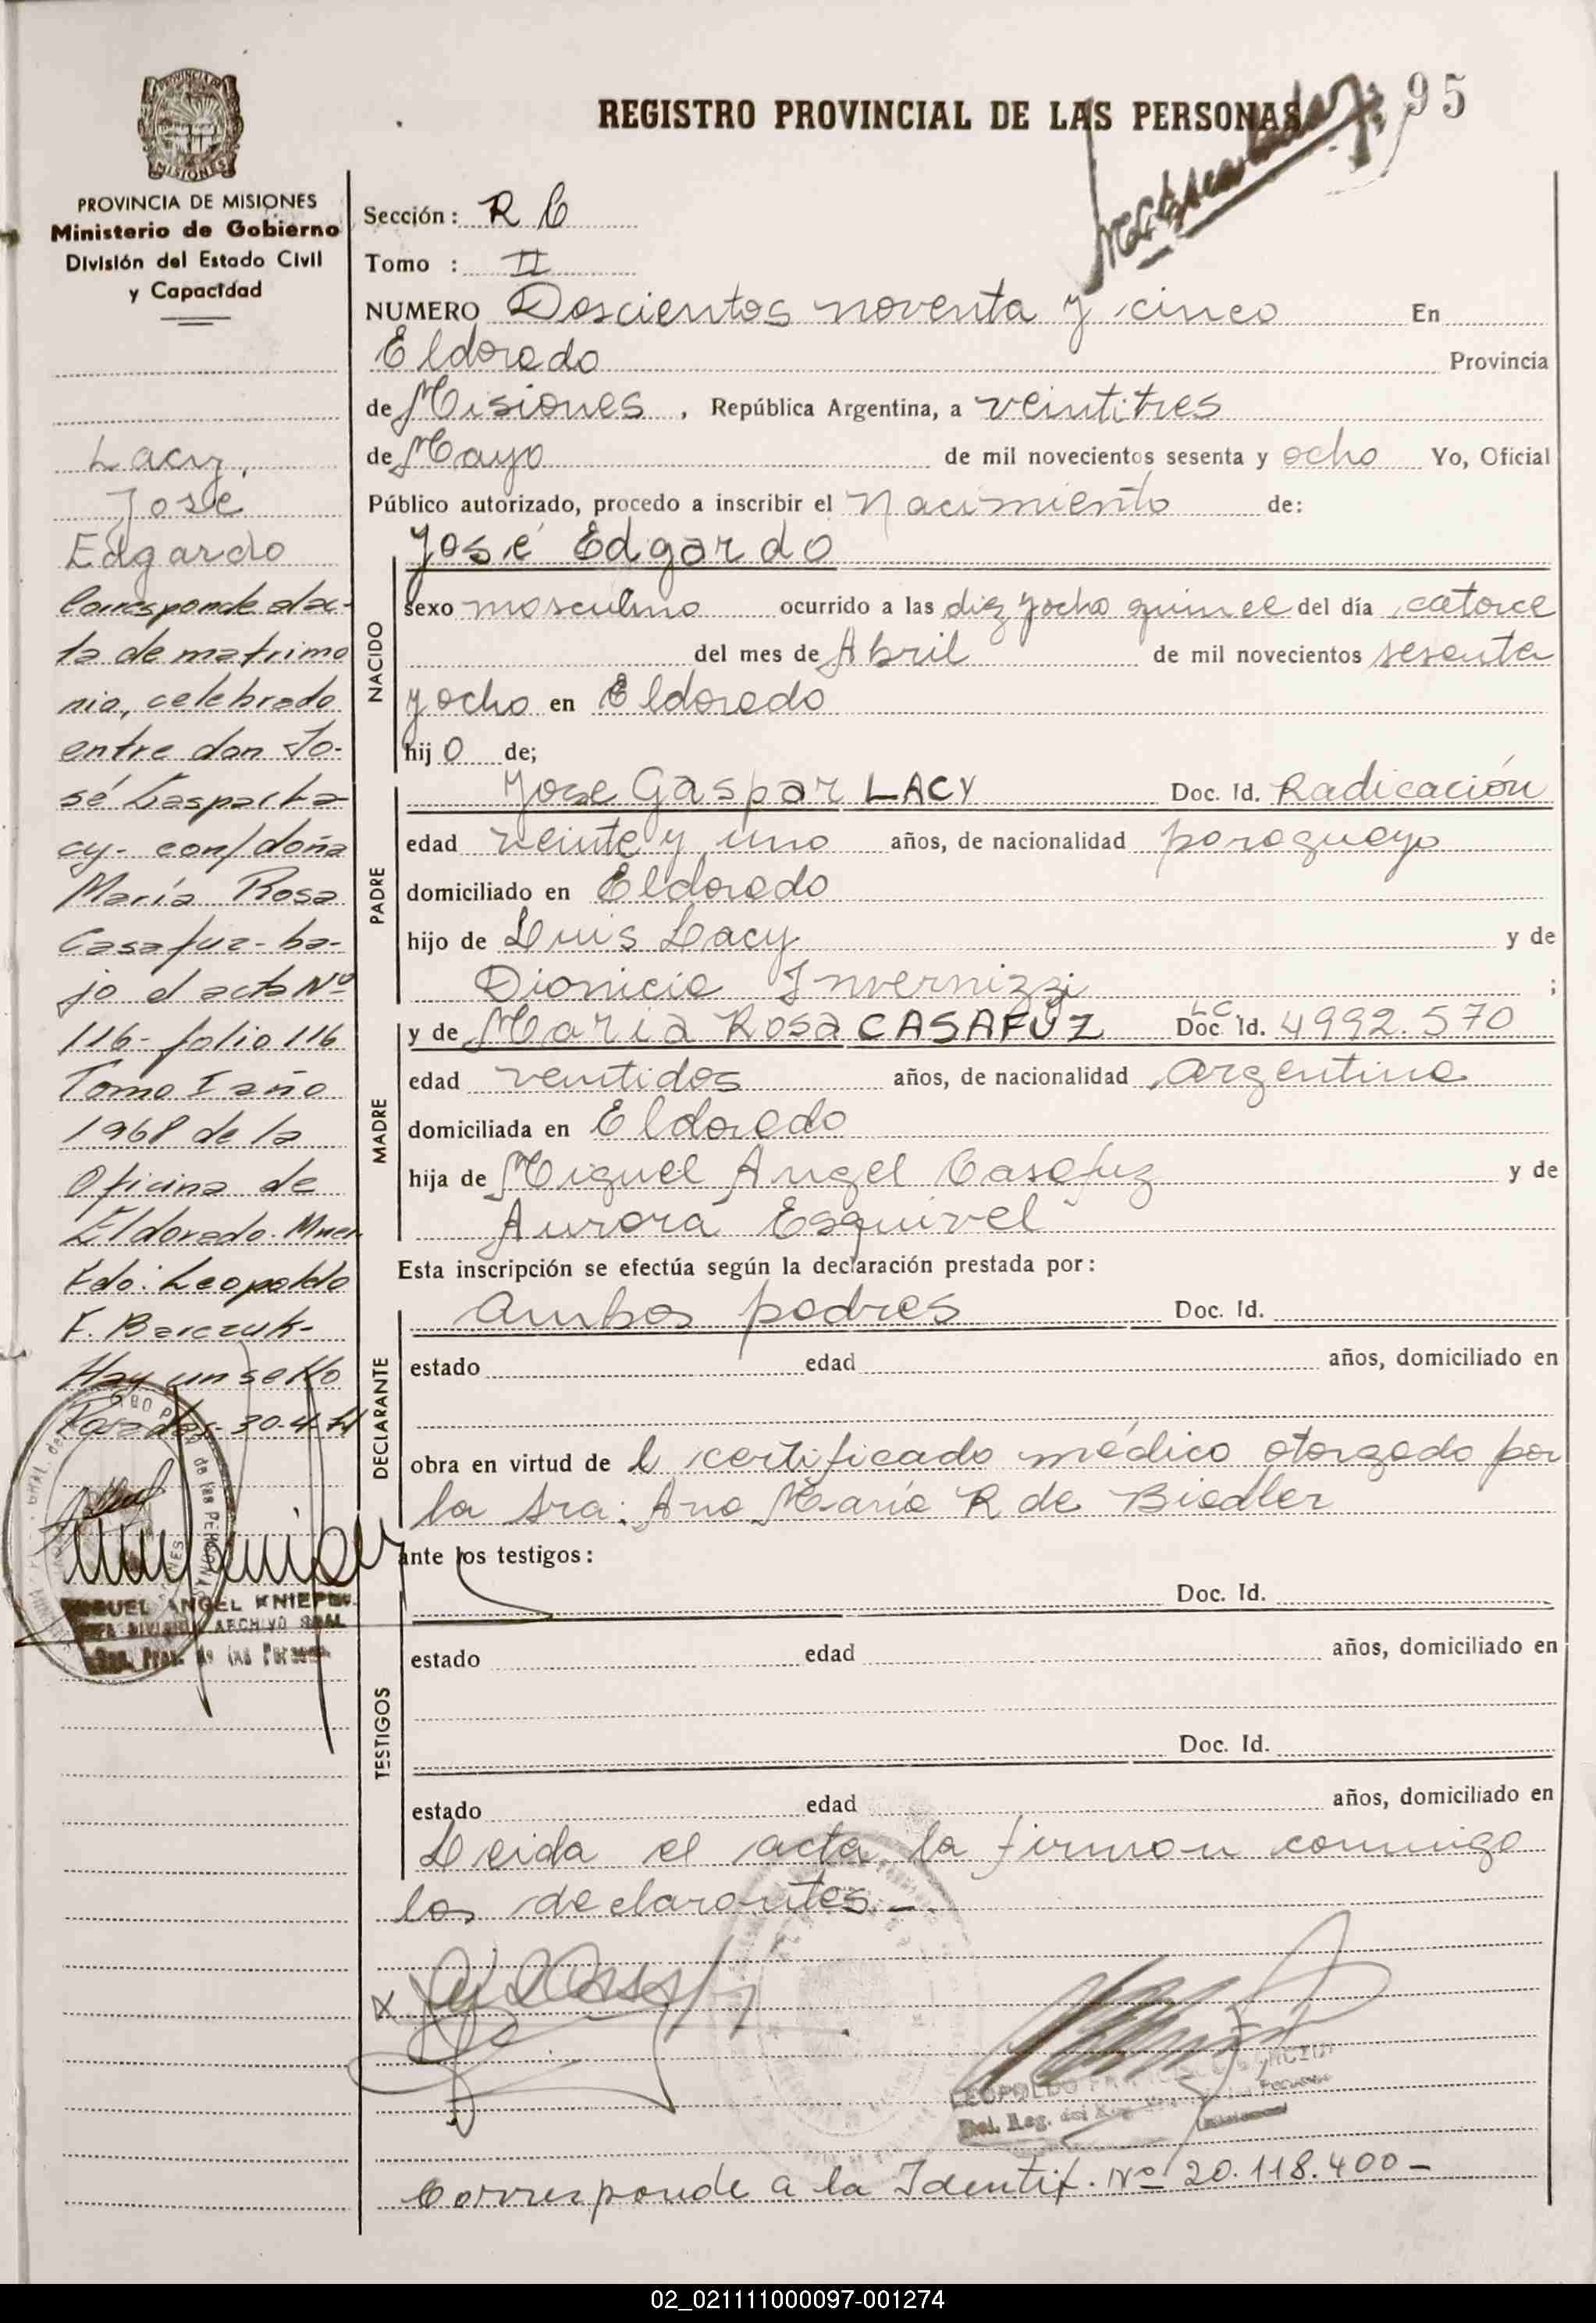 REGISTRO PROVINCIAL DE LAS PERSONAS
95
PROVINCIA DE MISIONES
Ministerio de Gobierno
División del Estado Civil
y Capacidad
Lacy,
José
Edgardo
Corresponde al ac-
ta de matrimo
nio, celebrado
entre don Jo-
sé Gaspar La-
cy- con/doña
María Rosa
Casafuz- ba-
jo el acta Nº
116- folio 116
Tomo I año
1968 de la
Oficina de
Eldorado.
Fdo: Leopoldo
F.
Hay un sello
Posadas- 30-4-
MIGUEL ANGEL
DIVISION ARCHIVO GRAL
Reg. Prov. de las Personas
Sección: R C
Tomo : II
NUMERO Doscientos noventa y cinco En
Eldorado Provincia
de Misiones, República Argentina, a veintitres
de Mayo de mil novecientos sesenta y ocho Yo, Oficial
Público autorizado, procedo a inscribir el Nacimiento de:
José Edgardo
NACIDO
sexo masculino ocurrido a las diez y ocho quince del día catorce
del mes de Abril de mil novecientos sesenta
y ocho en Eldorado
hijo de;
PADRE
Jose Gaspar LACY Doc. Id. Radicación
edad veinte y uno años, de nacionalidad paraguayo
domiciliado en Eldorado
hijo de Luis Lacy y de
Dionicia Invernizzi ;
MADRE
y de Maria Rosa CASAFUZ LC Doc. Id. 4992.570
edad veintidos años, de nacionalidad argentina
domiciliada en Eldorado
hija de Miguel Angel Casafuz y de
Aurora Esquivel
Esta inscripción se efectúa según la declaración prestada por:
DECLARANTE
Ambos padres Doc. Id.
estado edad años, domiciliado en
obra en virtud de l certificado médico otorgado por
la sra: Ana María R de Biedler
ante los testigos:
TESTIGOS
Doc. Id.
estado edad años, domiciliado en
Doc. Id.
estado edad años, domiciliado en
Leida el acta la firman conmigo
los declarantes.-
LEOPOLDO
Corresponde a la Identif. Nº 20.118.400-
02_021111000097-001274